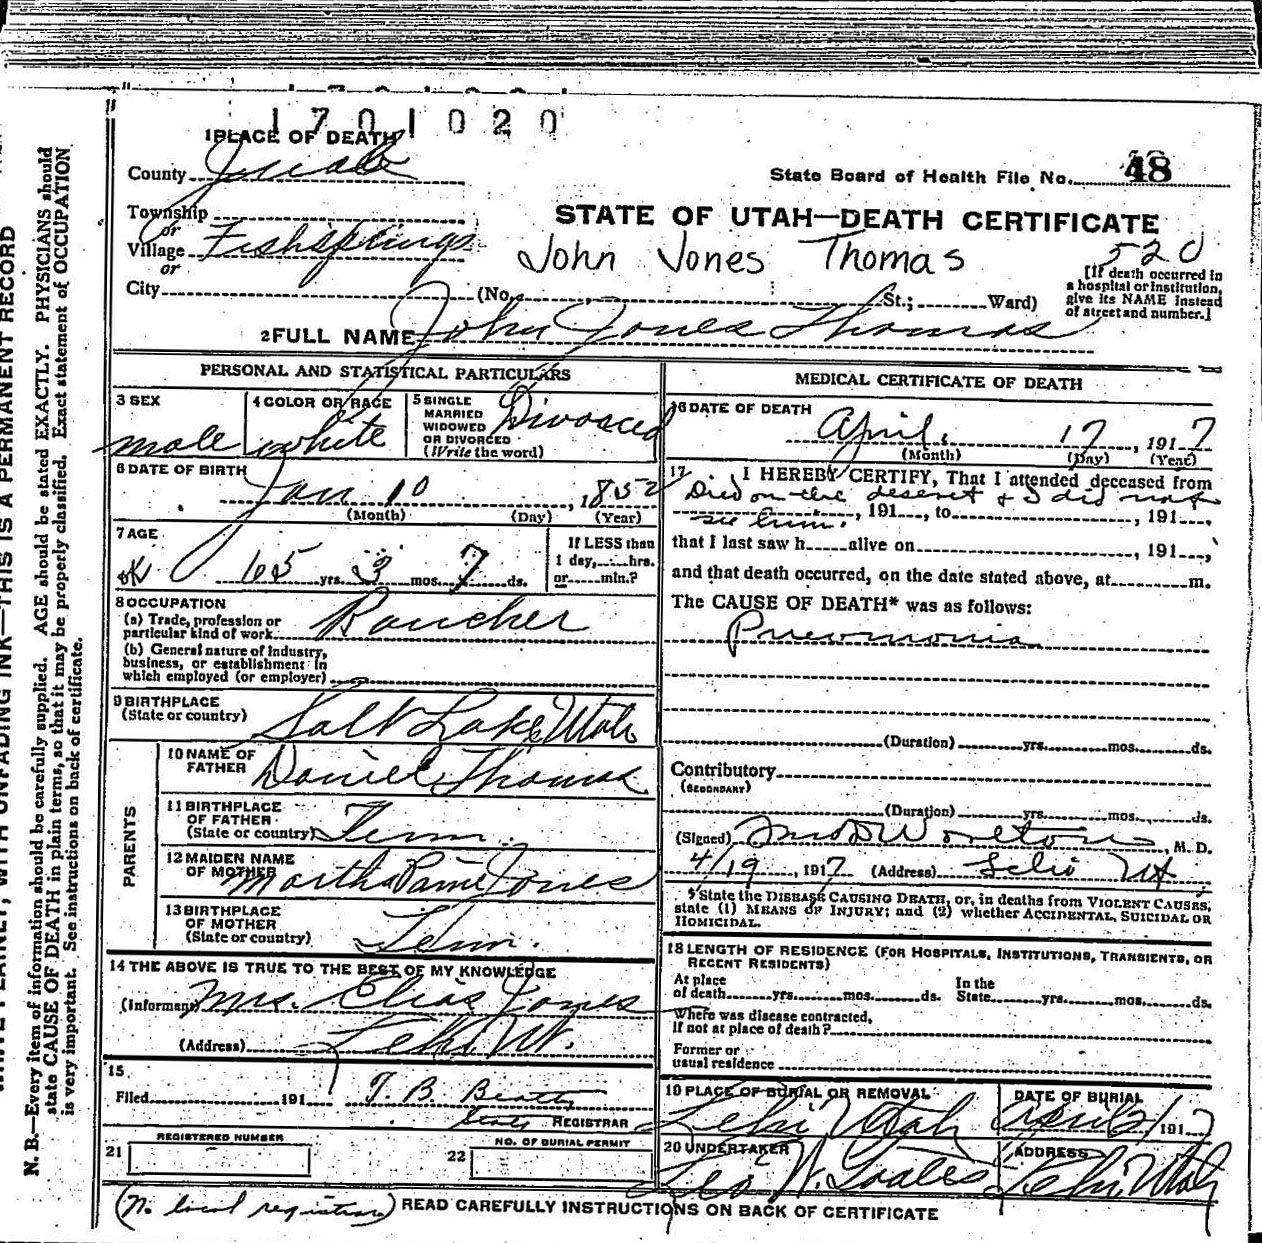 1701020
1 PLACE OF DEATH
County Juab
State Board of Health File No. 48
Township
or
Village Fishsprings
or
City (No. St.; Ward)
STATE OF UTAH—DEATH CERTIFICATE
John Jones Thomas 520
[If death occurred in
a hospital or institution,
give its NAME instead
of street and number.]
2 FULL NAME John Jones Thomas
PERSONAL AND STATISTICAL PARTICULARS
3 SEX
male
4 COLOR OR RACE
white
5 SINGLE
MARRIED
WIDOWED
OR DIVORCED
(Write the word)
Divorced
6 DATE OF BIRTH
Jan 10, 1852
(Month) (Day) (Year)
7 AGE
65 yrs. 3 mos. 7 ds.
If LESS than
1 day, hrs.
or min.?
8 OCCUPATION
(a) Trade, profession or
particular kind of work Rancher
(b) General nature of industry,
business, or establishment in
which employed (or employer)
9 BIRTHPLACE
(State or country) Salt Lake Utah
PARENTS
10 NAME OF
FATHER Daniel Thomas
11 BIRTHPLACE
OF FATHER
(State or country) Tenn.
12 MAIDEN NAME
OF MOTHER Martha Jones
13 BIRTHPLACE
OF MOTHER
(State or country) Tenn.
14 THE ABOVE IS TRUE TO THE BEST OF MY KNOWLEDGE
(Informant) Mrs. Elias Jones
(Address) Lehi Ut.
15
Filed 191 T. B. Beatty
State REGISTRAR
21 REGISTERED NUMBER
22 NO. OF BURIAL PERMIT
MEDICAL CERTIFICATE OF DEATH
16 DATE OF DEATH
April 17, 1917
(Month) (Day) (Year)
17 I HEREBY CERTIFY, That I attended deceased from
Died on the desert & I did not
see him. , 191 , to , 191 ,
that I last saw h alive on , 191 ,
and that death occurred, on the date stated above, at m.
The CAUSE OF DEATH* was as follows:
Pneumonia
(Duration) yrs. mos. ds.
Contributory
(SECONDARY)
(Duration) yrs. mos. ds.
(Signed) , M. D.
4/19, 1917 (Address) Lehi Ut
*State the DISEASE CAUSING DEATH, or, in deaths from VIOLENT CAUSES,
state (1) MEANS OF INJURY; and (2) whether ACCIDENTAL, SUICIDAL OR
HOMICIDAL.
18 LENGTH OF RESIDENCE (FOR HOSPITALS, INSTITUTIONS, TRANSIENTS, OR
RECENT RESIDENTS)
At place
of death yrs. mos. ds.
In the
State yrs. mos. ds.
Where was disease contracted,
if not at place of death?
Former or
usual residence
19 PLACE OF BURIAL OR REMOVAL
Lehi Utah
DATE OF BURIAL
191 7
20 UNDERTAKER
Leo W. Goates
ADDRESS
Lehi, Utah
(No local registrar) READ CAREFULLY INSTRUCTIONS ON BACK OF CERTIFICATE
WITH UNFADING INK—THIS IS A PERMANENT RECORD
N. B.—Every item of information should be carefully supplied. AGE should be stated EXACTLY. PHYSICIANS should
state CAUSE OF DEATH in plain terms, so that it may be properly classified. Exact statement of OCCUPATION
is very important. See instructions on back of certificate.